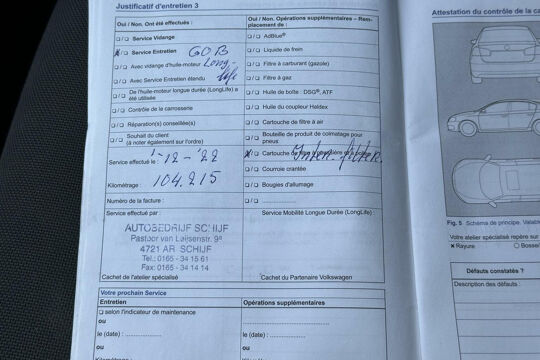 Justificatif d'entretien 3
Oui / Non. Ont été effectués :
Service Vidange
Service Entretien GOB
Avec vidange d'huile-moteur Long-
life
Avec Service Entretien étendu
De l'huile-moteur longue durée (LongLife) a
été utilisée
Contrôle de la carrosserie
Réparation(s) conseillée(s)
Souhait du client
(à noter également sur l'ordre)
Service effectué le : 1-12-'22
Kilométrage : 104.215
Numéro de la facture :
Service effectué par :
AUTOBEDRIJF SCHIJF
Pastoor van Luijsenstr. 9ª
4721 AR SCHIJF
Tel.: 0165 - 34 15 61
Fax: 0165 - 34 14 14
Cachet de l'atelier spécialisé
Oui / Non. Opérations supplémentaires – Rem-
placement de :
AdBlue®
Liquide de frein
Filtre à carburant (gazole)
Filtre à gaz
Huile de boîte : DSG®, ATF
Huile du coupleur Haldex
Cartouche de filtre à air
Bouteille de produit de colmatage pour
pneus
Cartouche de filtre à
Inter. filter.
Courroie crantée
Bougies d'allumage
Service Mobilité Longue Durée (LongLife) :
Cachet du Partenaire Volkswagen
Votre prochain Service
Entretien
selon l'indicateur de maintenance
ou
le (date) :
ou
Opérations supplémentaires
le (date) :
ou
Attestation du contrôle de la
Fig. 5 Schéma de principe.
Votre atelier spécialisé repère sur
Rayure
Défauts constatés ?
Description des défauts :